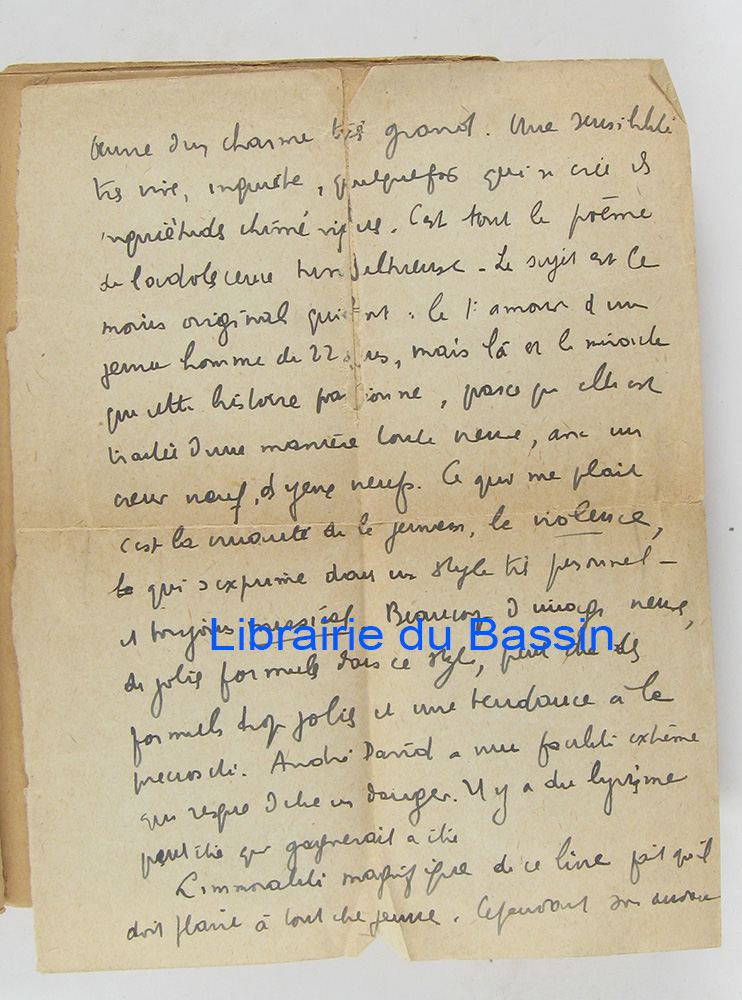 Œuvre d'un charme très grand. Une sensibilité
très vive, inquiète, quelquefois qui se crée des
inquiétudes chimériques. C'est tout le poème
de l'adolescence tumultueuse - Le sujet est le
moins original qui soit : le 1er amour d'un
jeune homme de 22 ans, mais là est le miracle
que cette histoire passionne, parce qu'elle est
traitée d'une manière toute neuve, avec un
cœur neuf, des yeux neufs. Ce qui me plait
c'est la de la jeunesse, la violence,
le qui s'exprime dans un style très personnel -
et toujours musical Beaucoup d'images neuves,
de jolies formules dans ce style, peut être des
formules trop jolies et une tendance à la
préciosité. André David a une facilité extrême
qui risque d'être un danger. Il y a du lyrisme
peut être qui gagnerait à être
L'immoralité magnifique de ce livre fait qu'il
doit plaire à tout être jeune. Cependant son
Librairie du Bassin